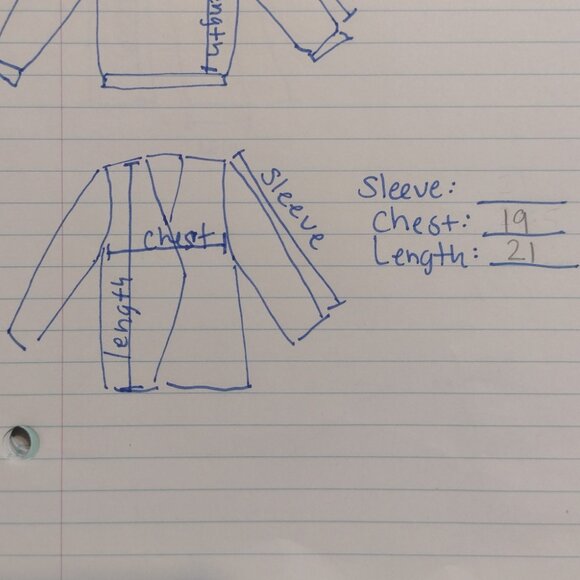 length
Sleeve
Chest
length
Sleeve:
Chest: 19
Length: 21